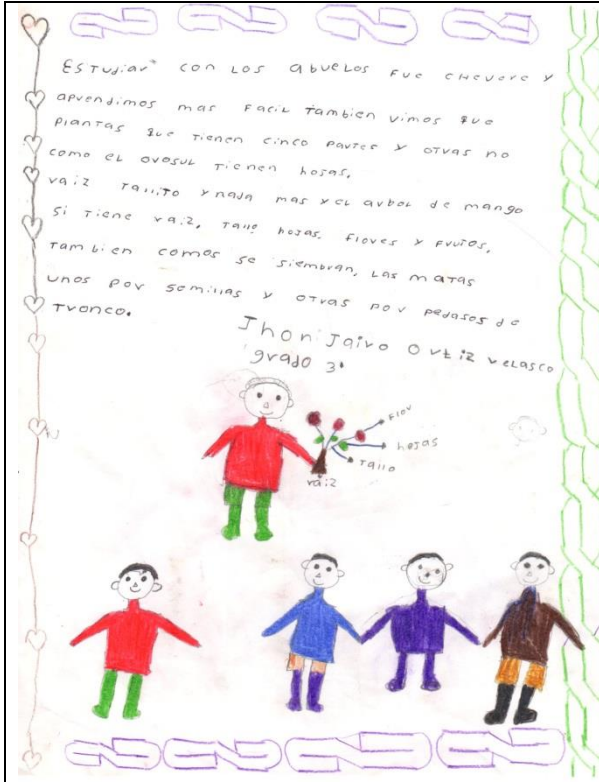 Estudiar con los abuelos fue chevere y
aprendimos mas facil tambien vimos que
plantas que tienen cinco partes y otras no
como el orosul tienen hojas,
raiz tallito y nada mas y el arbol de mango
si tiene raiz, tallo hojas, flores y frutos,
tambien comos se siembran, las matas
unos por semillas y otras por pedasos de
tronco.
Jhon Jairo Ortiz Velasco
grado 3°
flor
hojas
tallo
raiz